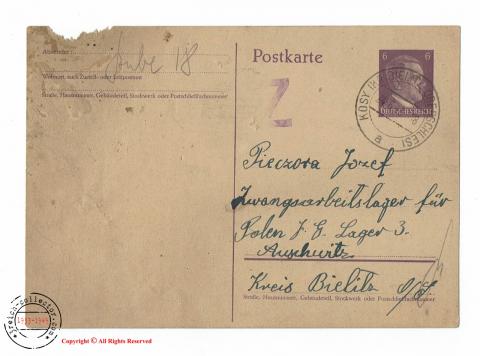 Absender:
Stube 18
Wohnort, auch Zustell- oder Leitpostamt
Straße, Hausnummer, Gebäudeteil, Stockwerk oder Postschließfachnummer
Postkarte
6 6
DEUTSCHES REICH
Z
KOSY
OBERSCHLES
a
Pieczora Jozef
Zwangsarbeitslager für
Polen J. G. Lager 3.
Auschwitz
Kreis Bielitz O/S.
Straße, Hausnummer, Gebäudeteil, Stockwerk oder Postschließfachnummer
3reich-collector.com
1933-1945
Copyright © All Rights Reserved